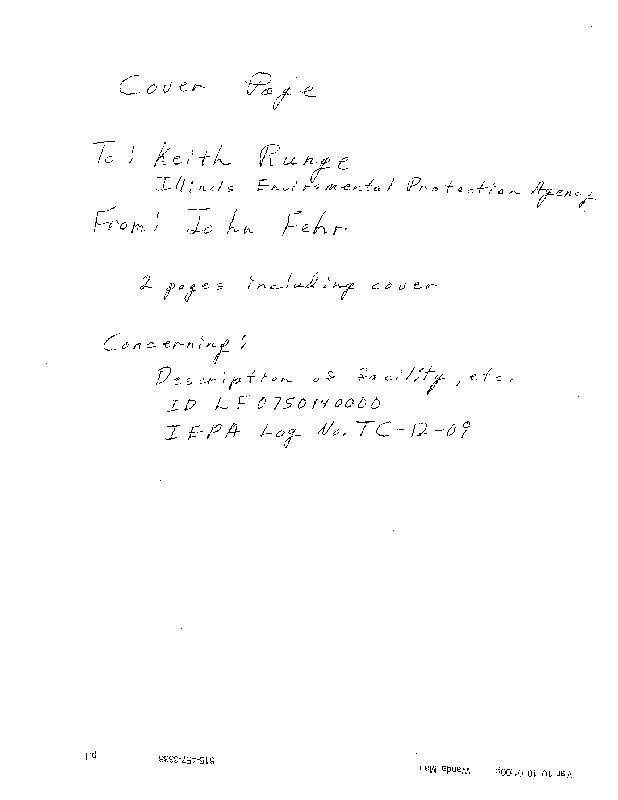 Cover Page
To: Keith Runge
Illinois Enviromental Protection Agency
From: John Fehr
2 pages including cover
Concerning:
Description of facility, etc.
ID LF 0750140000
IEPA Log No. TC-12-09
p.1
Wanda